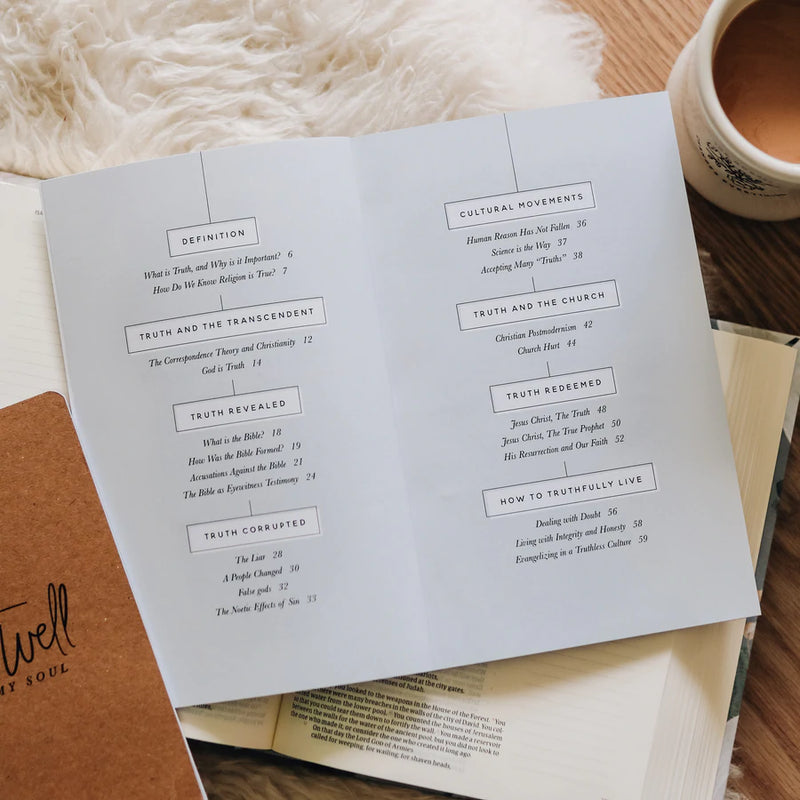 DEFINITION
What is Truth, and Why is it Important? 6
How Do We Know Religion is True? 7
TRUTH AND THE TRANSCENDENT
The Correspondence Theory and Christianity 12
God is Truth 14
TRUTH REVEALED
What is the Bible? 18
How Was the Bible Formed? 19
Accusations Against the Bible 21
The Bible as Eyewitness Testimony 24
TRUTH CORRUPTED
The Liar 28
A People Changed 30
False gods 32
The Noetic Effects of Sin 33
CULTURAL MOVEMENTS
Human Reason Has Not Fallen 36
Science is the Way 37
Accepting Many “Truths” 38
TRUTH AND THE CHURCH
Christian Postmodernism 42
Church Hurt 44
TRUTH REDEEMED
Jesus Christ, The Truth 48
Jesus Christ, The True Prophet 50
His Resurrection and Our Faith 52
HOW TO TRUTHFULLY LIVE
Dealing with Doubt 56
Living with Integrity and Honesty 58
Evangelizing in a Truthless Culture 59
well
MY SOUL
at the city gates.
of Judah.
you looked to the weapons in the House of the Forest. You
were many breaches in the walls of the city of David. You col-
water from the lower pool. You counted the houses of Jerusalem
so that you could tear them down to fortify the wall. You made a reservoir
between the walls for the water of the ancient pool, but you did not look to
the one who made it, or consider the one who created it long ago.
On that day the Lord GOD of Armies
called for weeping, for wailing, for shaven heads,